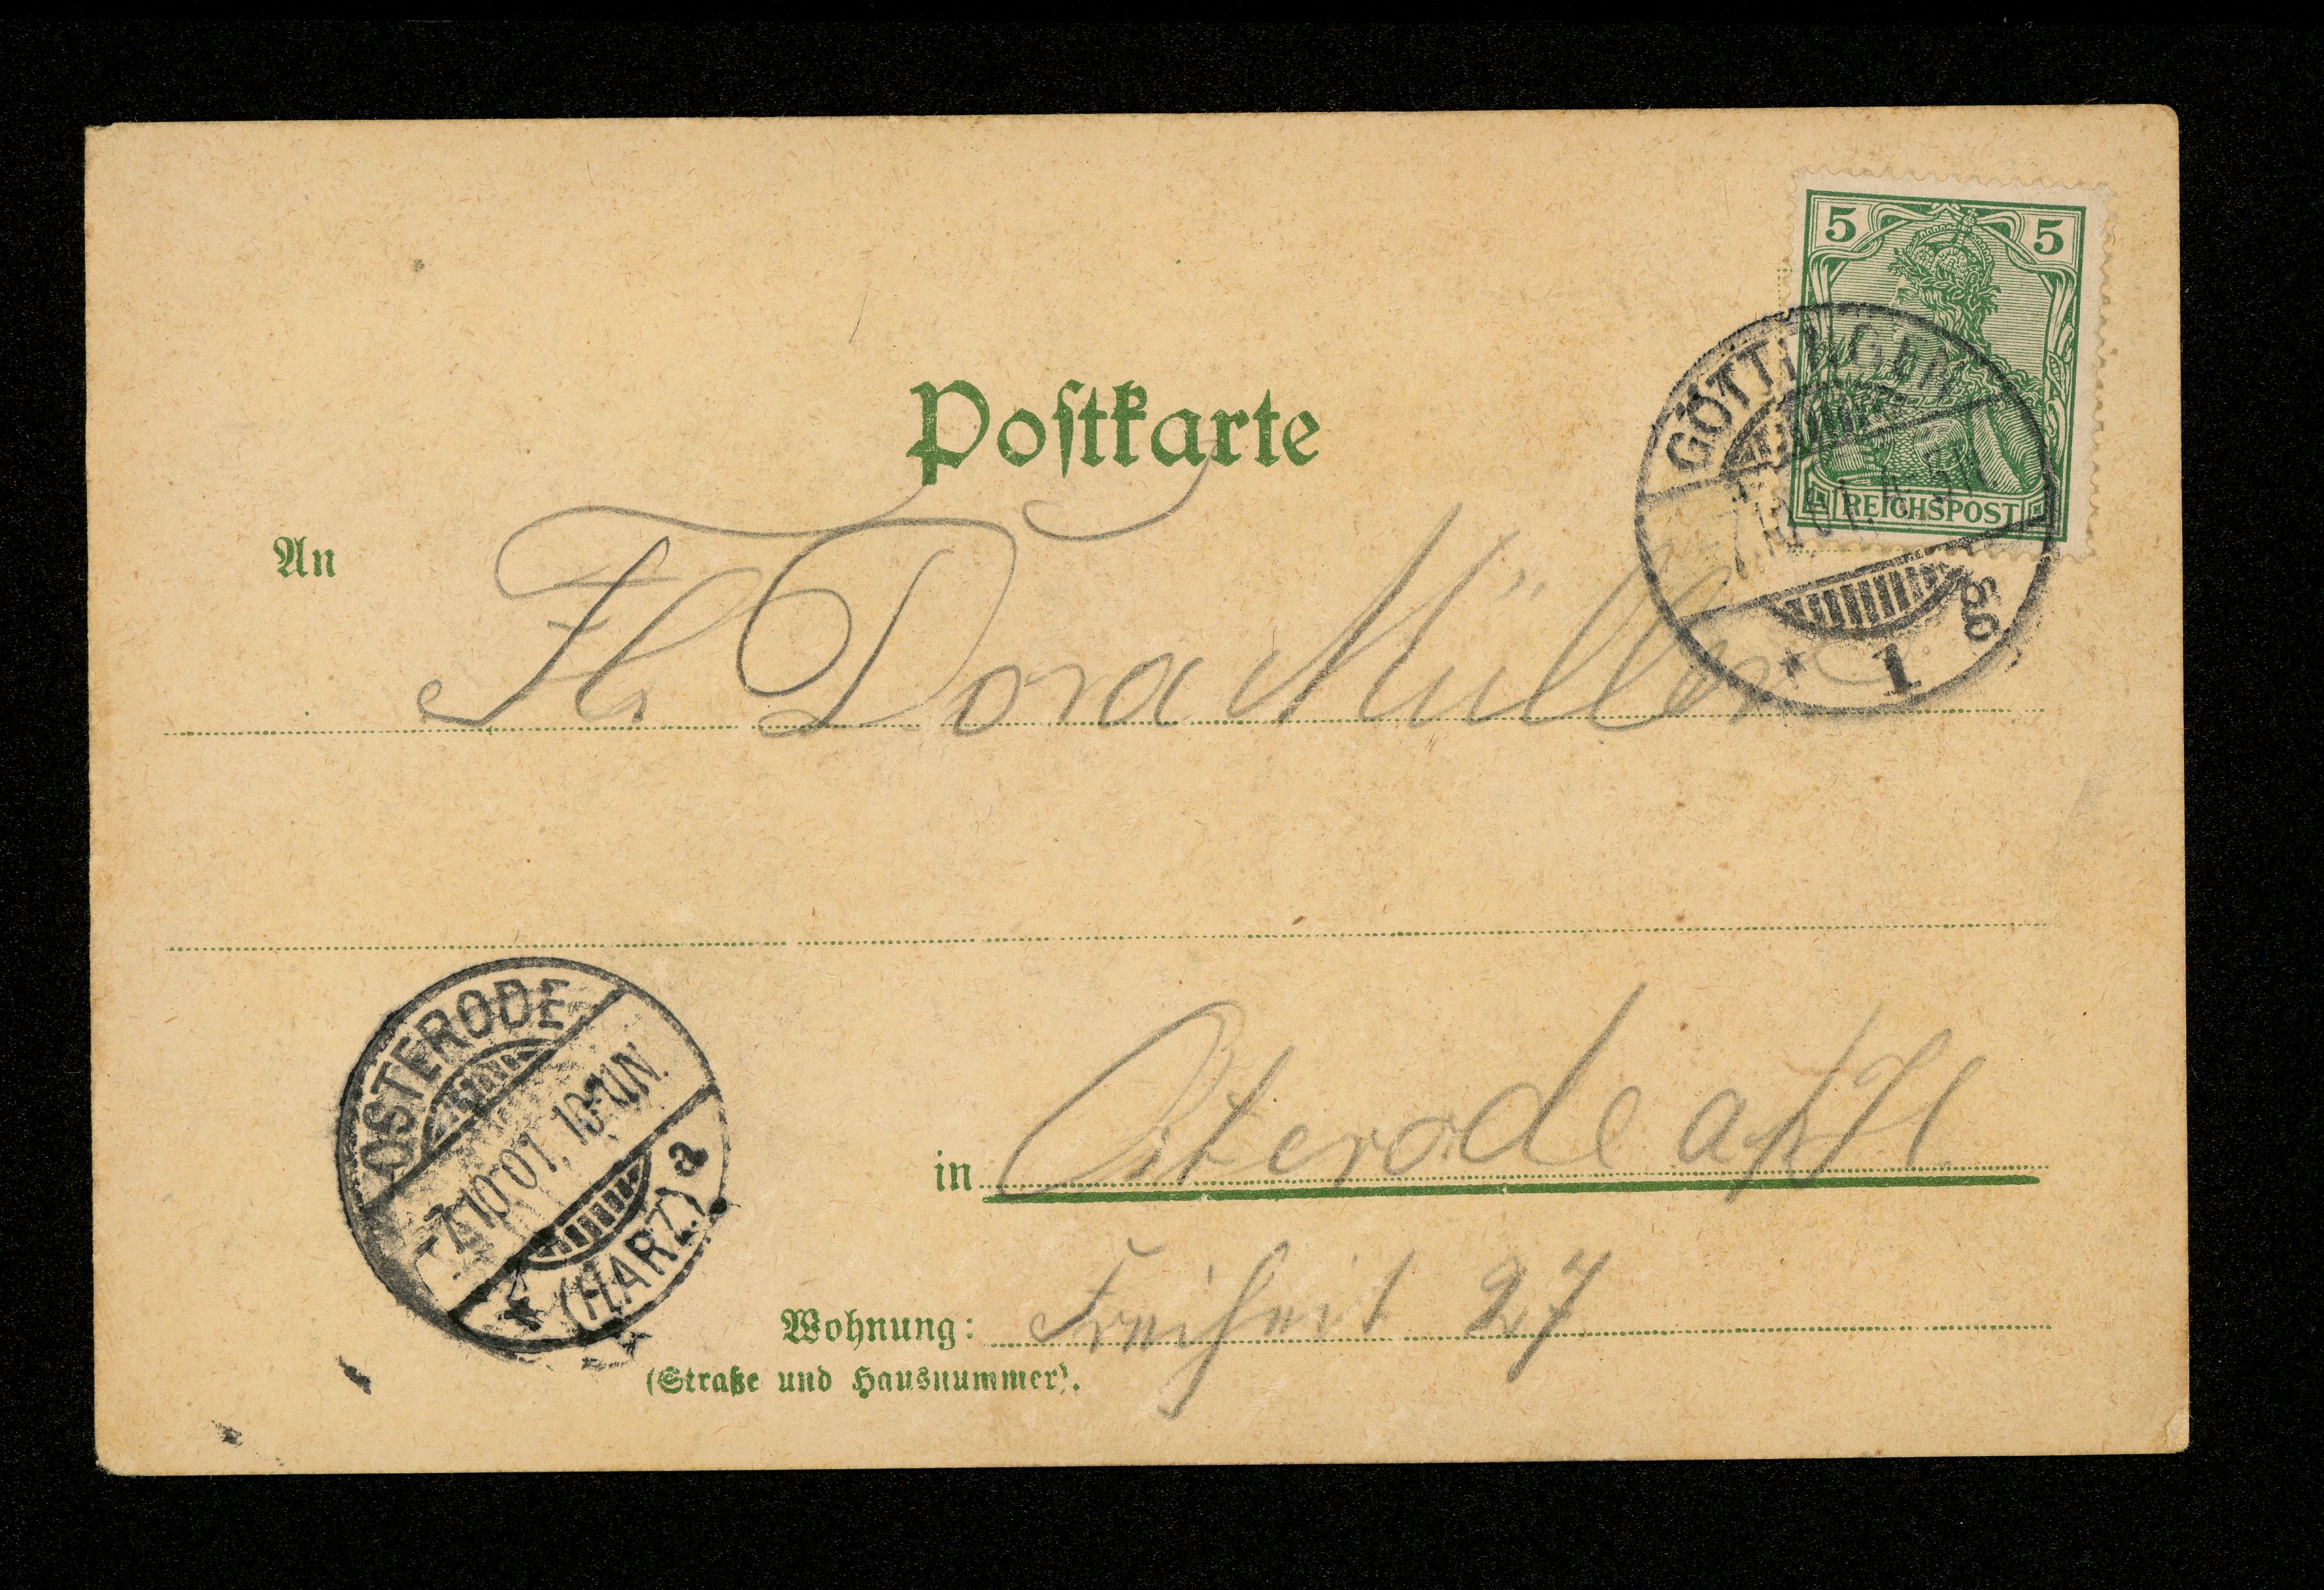 5 5
REICHSPOST
GÖTTINGEN
* 1 g
Postkarte
An Fl. Dora Müller
OSTERODE
-7.10.01. 10-11N.
* (HARZ.) a
in Osterode a/H.
Wohnung: Freiheit 27
(Straße und Hausnummer).